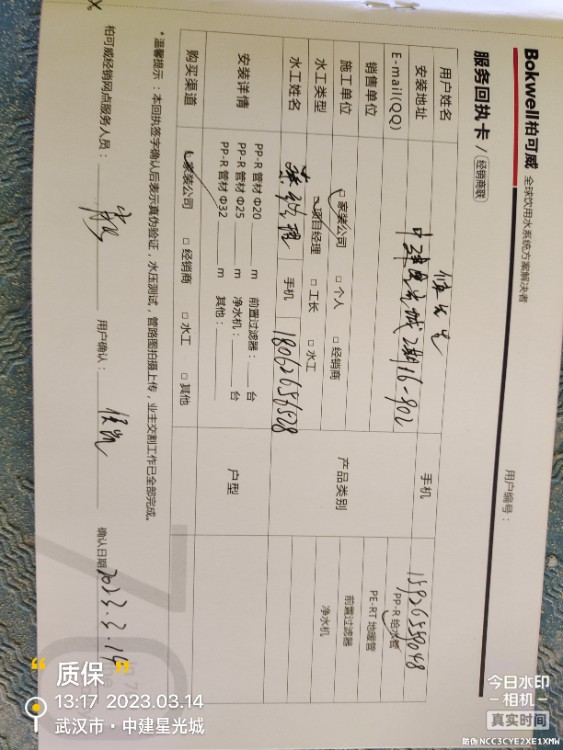 Bokwell柏可威 全球饮用水系统方案解决者
服务回执卡 / 经销商联
用户编号：
用户姓名
手机 15926559048
安装地址 中建星光城2期16-902
E-mail(QQ)
销售单位
产品类别
PP-R 给水管
PE-RT 地暖管
前置过滤器
净水机
施工单位 □ 家装公司 □ 个人 □ 经销商
水工类型 □ 项目经理 □ 工长 □ 水工
水工姓名 手机 18062656528
安装详情
PP-R 管材 Φ20 m 前置过滤器： 台
PP-R 管材 Φ25 m 净水机： 台
PP-R 管材 Φ32 m 其他：
户型
购买渠道 □ 家装公司 □ 经销商 □ 水工 □ 其他
*温馨提示：本回执签字确认后表示真伪验证，水压测试，管路图拍摄上传，业主交割工作已全部完成。
柏可威经销网点服务人员： 用户确认： 确认日期 2023.3.14
质保
13:17 2023.03.14
武汉市·中建星光城
今日水印
相机
真实时间
防伪 NCC3CYE2XE1XMW